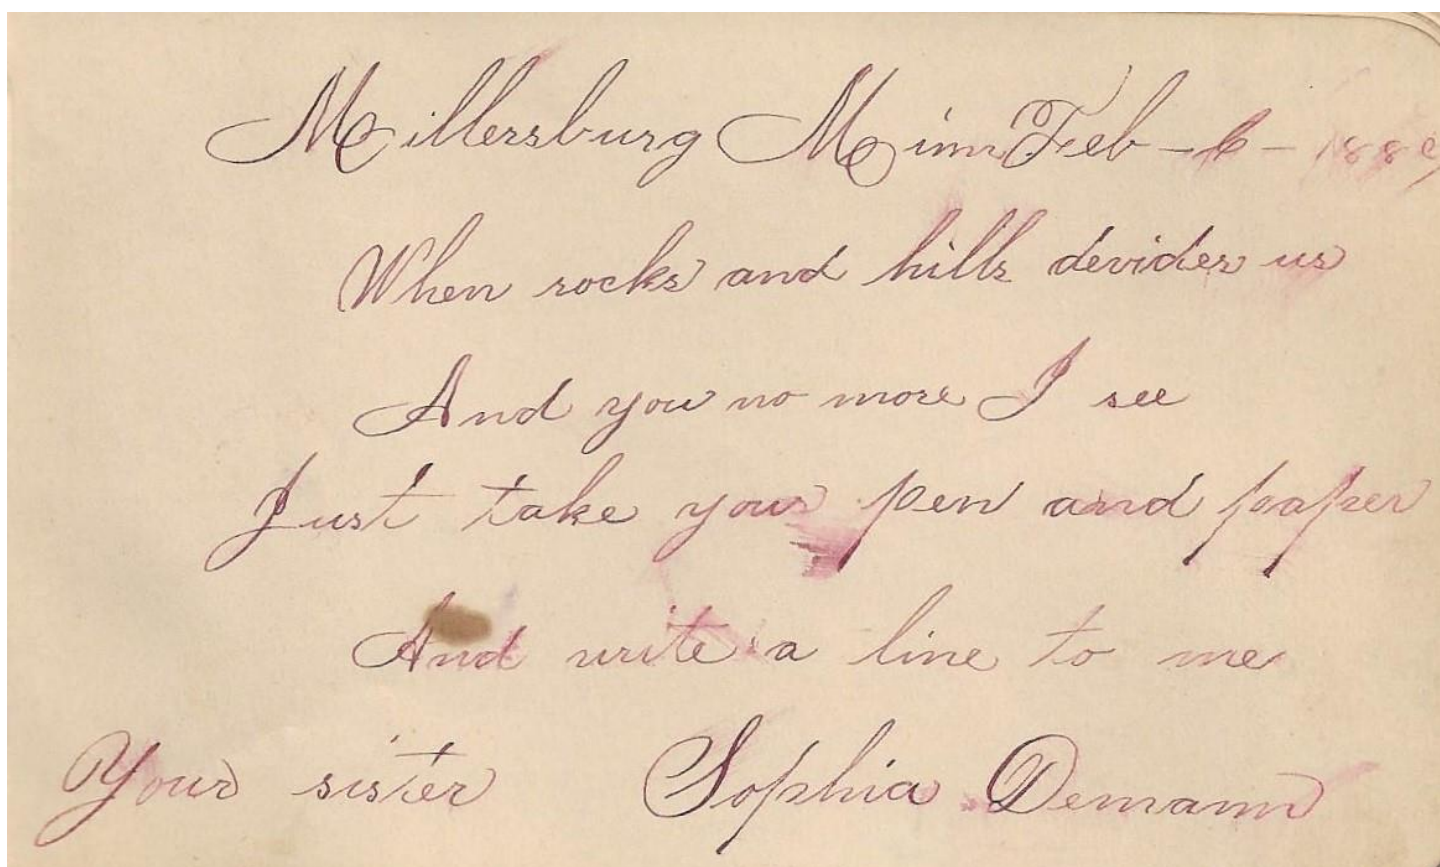 Millersburg Minn Feb - 6 - 1889
When rocks and hills devides us
And you no more I see
Just take your pen and paper
And write a line to me
Your sister Sophia Demann